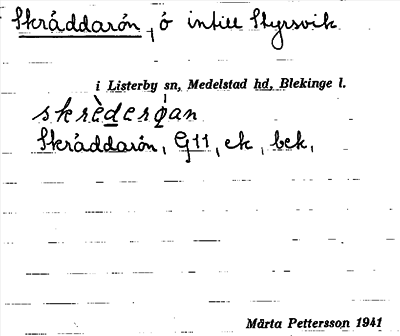 Skräddarön, ö intill Styrsvik
i Listerby sn, Medelstad hd, Blekinge l.
skrèderø̀an
Skräddarön, G11, ek, bek,
Märta Pettersson 1941